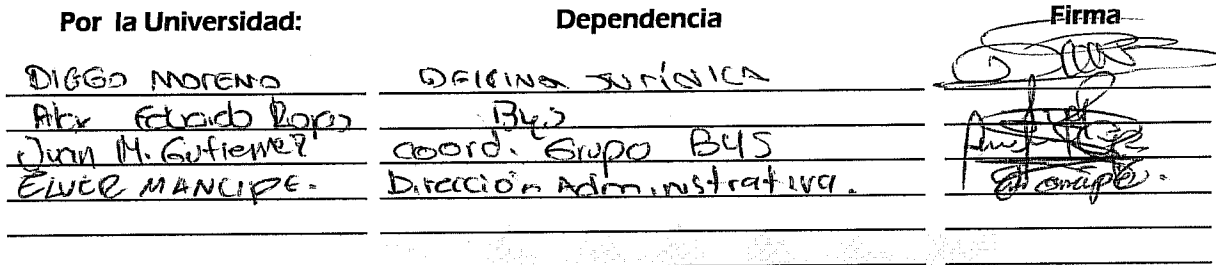 Por la Universidad: Dependencia Firma
DIEGO MORENO OFICINA JURÍDICA
Eduardo Rojas ByS
Juan M. Gutierrez coord. Grupo BYS
ELVER MANCIPE. Dirección Administrativa.